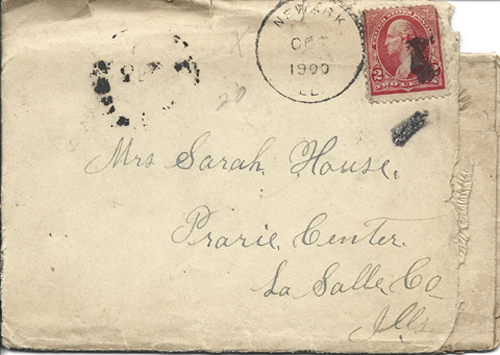 NEWARK
OCT
1900
ILL.
2 2
20
Mrs Sarah House.
Prarie Center.
La Salle Co
Ills